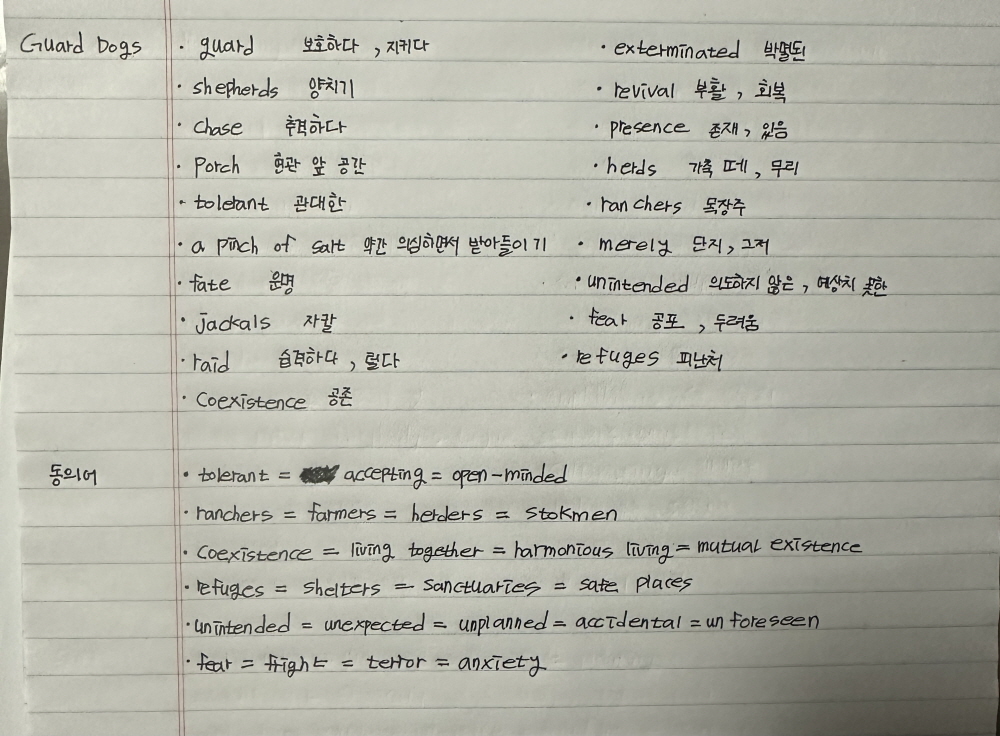 Guard Dogs
· guard 보호하다, 지키다
· shepherds 양치기
· chase 추격하다
· porch 현관 앞 공간
· tolerant 관대한
· a pinch of salt 약간 의심하면서 받아들이기
· fate 운명
· jackals 자칼
· raid 습격하다, 털다
· coexistence 공존
· exterminated 박멸된
· revival 부활, 회복
· presence 존재, 있음
· herds 가축 떼, 무리
· ranchers 목장주
· merely 단지, 그저
· unintended 의도하지 않은, 예상치 못한
· fear 공포, 두려움
· refuges 피난처
동의어
· tolerant = accepting = open-minded
· ranchers = farmers = herders = stokmen
· coexistence = living together = harmonious living = mutual existence
· refuges = shelters = sanctuaries = safe places
· unintended = unexpected = unplanned = accidental = unforeseen
· fear = fright = terror = anxiety